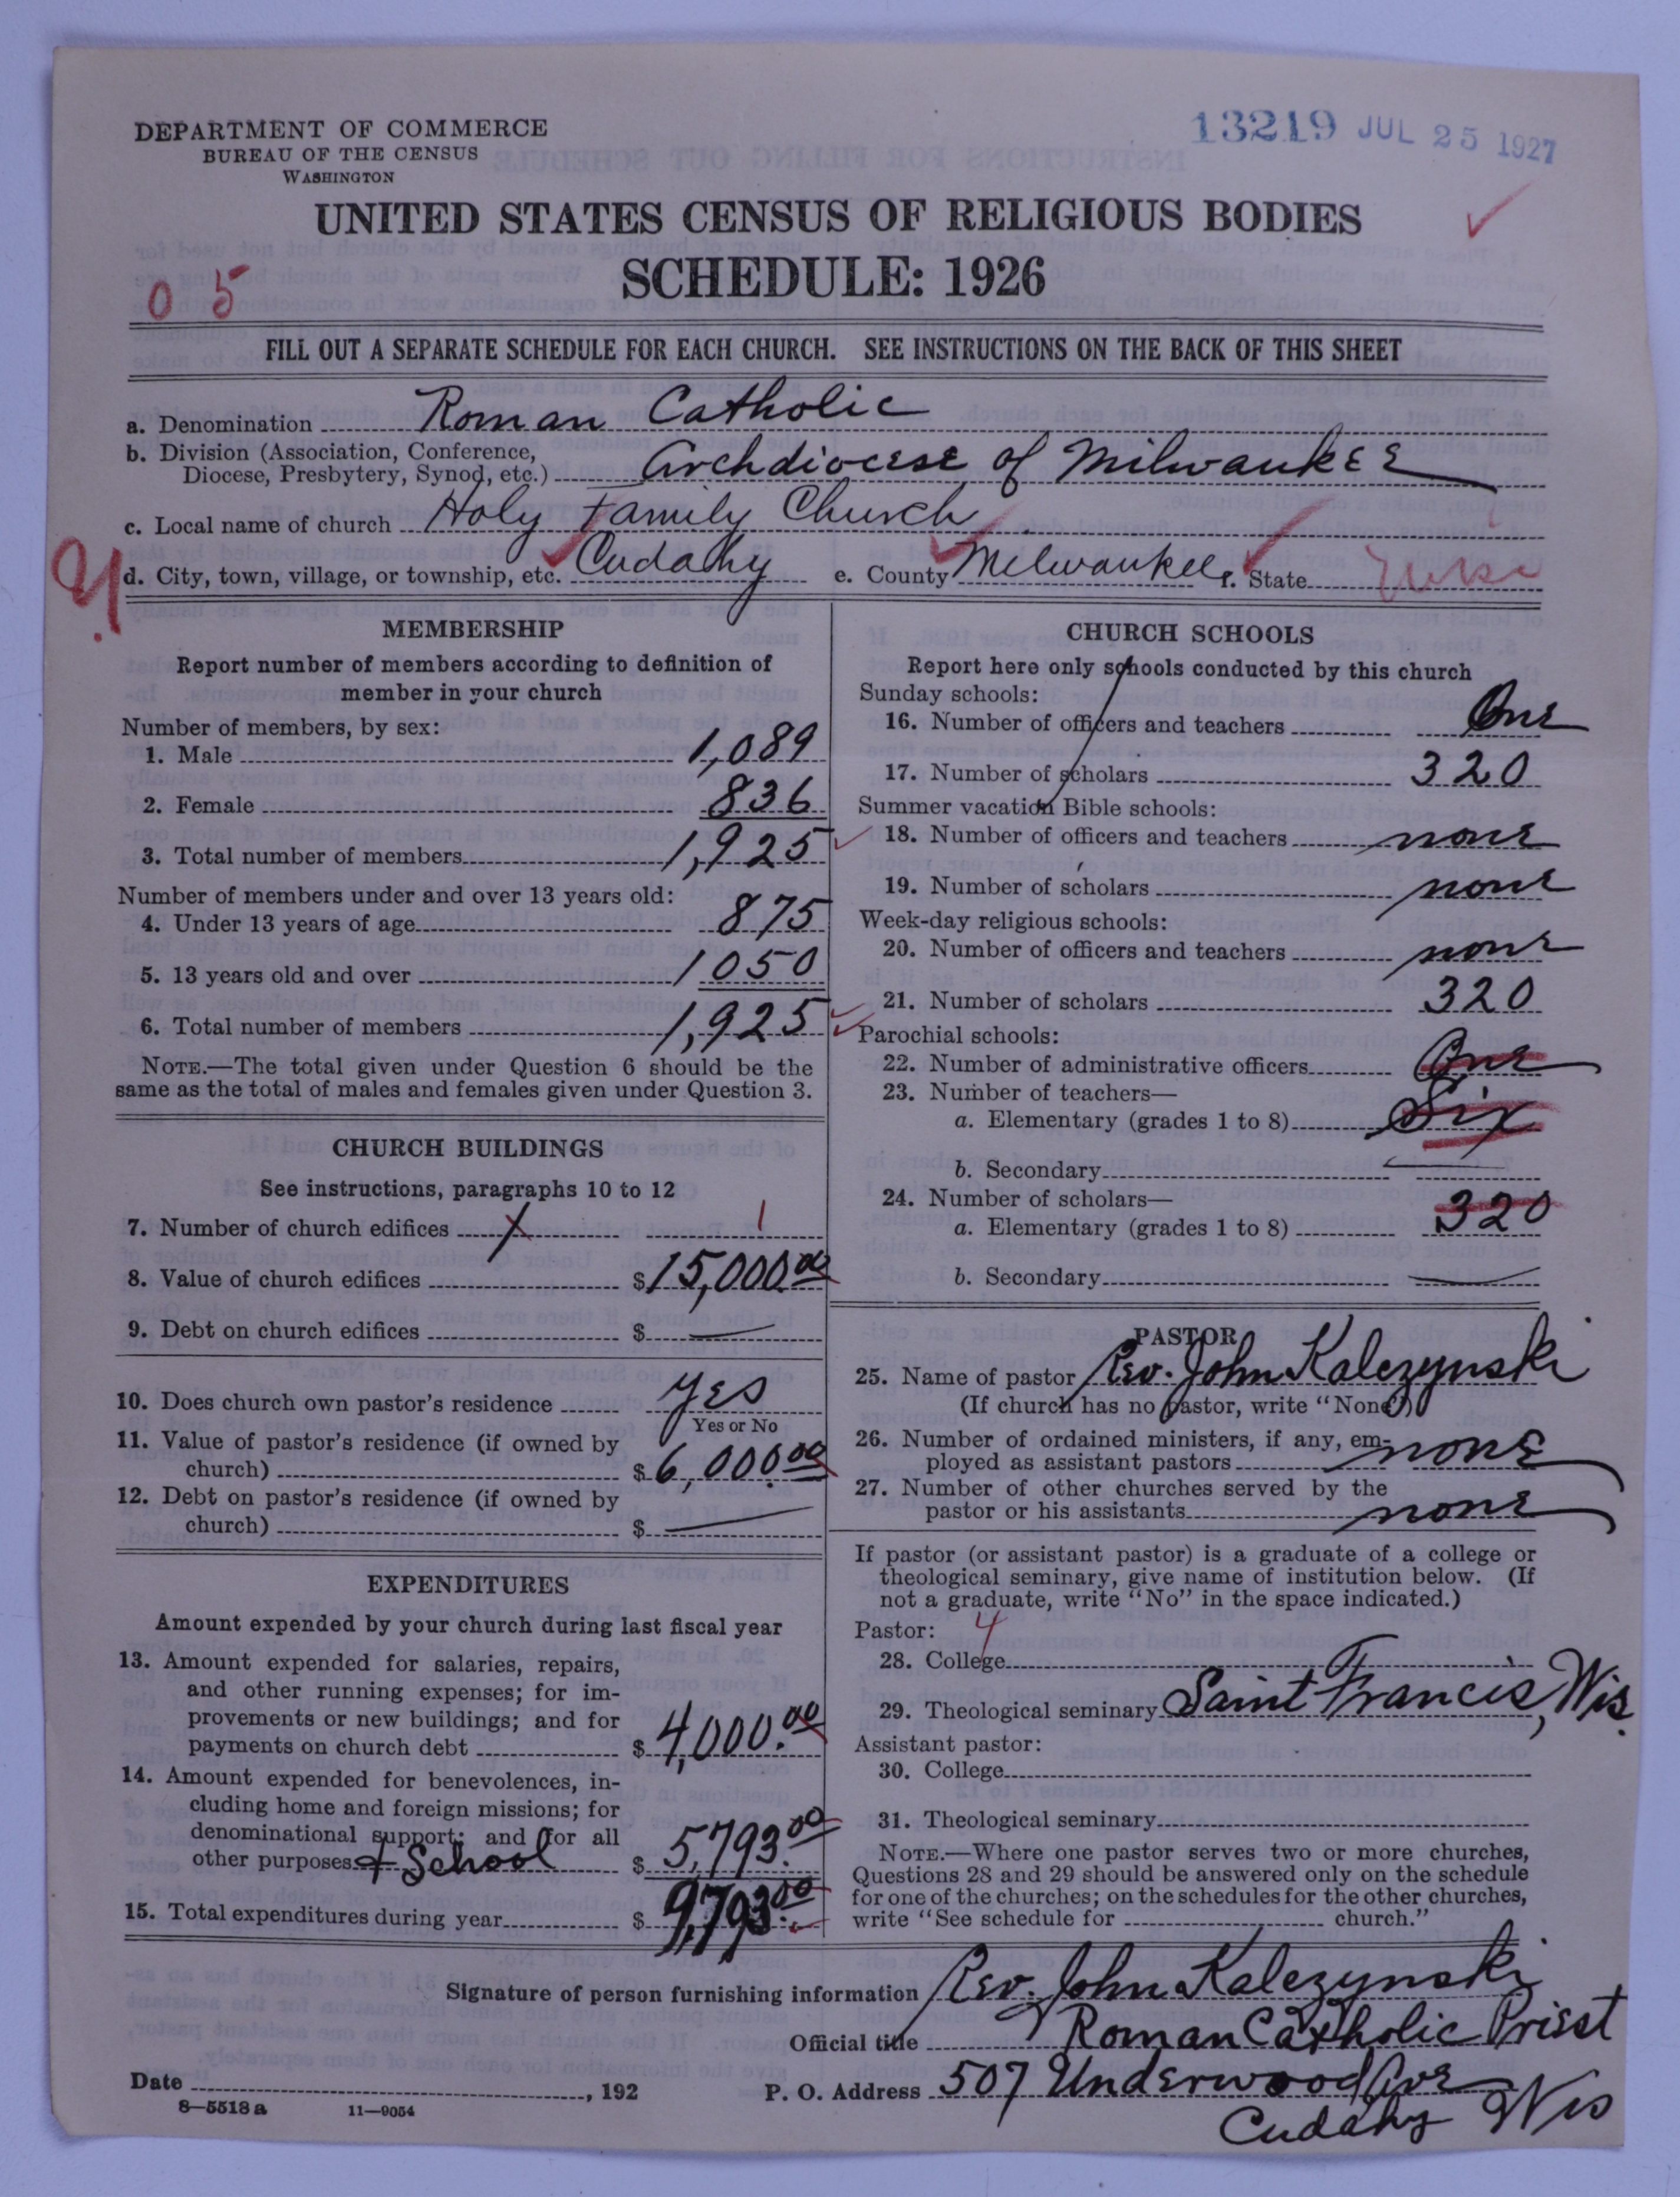 DEPARTMENT OF COMMERCE
BUREAU OF THE CENSUS
WASHINGTON
13219 JUL 25 1927
UNITED STATES CENSUS OF RELIGIOUS BODIES
SCHEDULE: 1926
05
FILL OUT A SEPARATE SCHEDULE FOR EACH CHURCH. SEE INSTRUCTIONS ON THE BACK OF THIS SHEET
a. Denomination Roman Catholic
b. Division (Association, Conference,
Diocese, Presbytery, Synod, etc.) Archdiocese of Milwaukee
c. Local name of church Holy Family Church
d. City, town, village, or township, etc. Cudahy e. County Milwaukee f. State Wisc
MEMBERSHIP
Report number of members according to definition of
member in your church
Number of members, by sex:
1. Male 1,089
2. Female 836
3. Total number of members 1,925
Number of members under and over 13 years old:
4. Under 13 years of age 875
5. 13 years old and over 1050
6. Total number of members 1,925
NOTE.—The total given under Question 6 should be the
same as the total of males and females given under Question 3.
CHURCH BUILDINGS
See instructions, paragraphs 10 to 12
7. Number of church edifices 1 1
8. Value of church edifices $15,000.00
9. Debt on church edifices $ —
10. Does church own pastor's residence Yes
Yes or No
11. Value of pastor's residence (if owned by
church) $6,000.00
12. Debt on pastor's residence (if owned by
church) $ —
EXPENDITURES
Amount expended by your church during last fiscal year
13. Amount expended for salaries, repairs,
and other running expenses; for im-
provements or new buildings; and for
payments on church debt $4,000.00
14. Amount expended for benevolences, in-
cluding home and foreign missions; for
denominational support; and for all
other purposes + School $5,793.00
15. Total expenditures during year $9,793.00
CHURCH SCHOOLS
Report here only schools conducted by this church
Sunday schools:
16. Number of officers and teachers One
17. Number of scholars 320
Summer vacation Bible schools:
18. Number of officers and teachers none
19. Number of scholars none
Week-day religious schools:
20. Number of officers and teachers none
21. Number of scholars 320
Parochial schools:
22. Number of administrative officers One
23. Number of teachers—
a. Elementary (grades 1 to 8) Six
b. Secondary —
24. Number of scholars—
a. Elementary (grades 1 to 8) 320
b. Secondary —
PASTOR
25. Name of pastor Rev. John Kalczynski
(If church has no pastor, write "None")
26. Number of ordained ministers, if any, em-
ployed as assistant pastors none
27. Number of other churches served by the
pastor or his assistants none
If pastor (or assistant pastor) is a graduate of a college or
theological seminary, give name of institution below. (If
not a graduate, write "No" in the space indicated.)
Pastor: 4
28. College
29. Theological seminary Saint Francis, Wis.
Assistant pastor:
30. College
31. Theological seminary
NOTE.—Where one pastor serves two or more churches,
Questions 28 and 29 should be answered only on the schedule
for one of the churches; on the schedules for the other churches,
write "See schedule for church."
Signature of person furnishing information Rev. John Kalczynski
Official title Roman Catholic Priest
Date , 192 P. O. Address 507 Underwood Ave
8—5518a 11—9054
Cudahy Wis